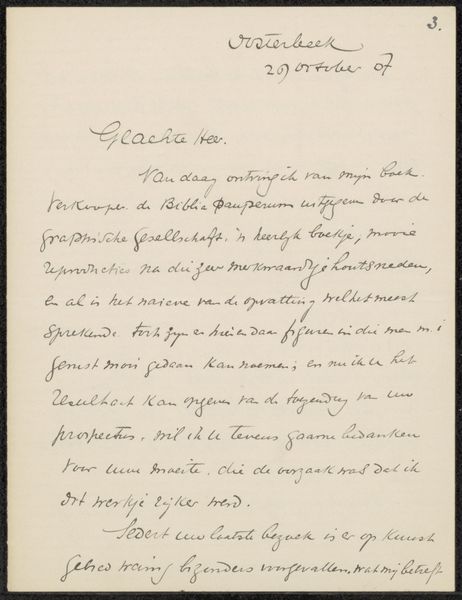 3.
Oosterbeek
29 October 07
Geachte Heer.
Van daag ontving ik van mijn boek
verkooper de Biblia Pauperum uitgegeven door de
graphische Gesellschaft, 'n heerlijk boekje, mooie
reproducties na die zeer merkwaardige houtsneden,
en al is het naieve van de opvatting wel het meest
sprekende toch zijn er hier en daar figuren in die men m.i
gerust mooi gedaan kan noemen; en nu ik u het
resultaat kan opgeven van de toezending van uw
prospectus, wil ik u tevens gaarne bedanken
voor uwe moeite, die de oorzaak was dat ik
dit werkje rijker werd.
Sedert uw laatste bezoek is er op kunst
gebied weinig bizonders voorgevallen, wat mij betreft